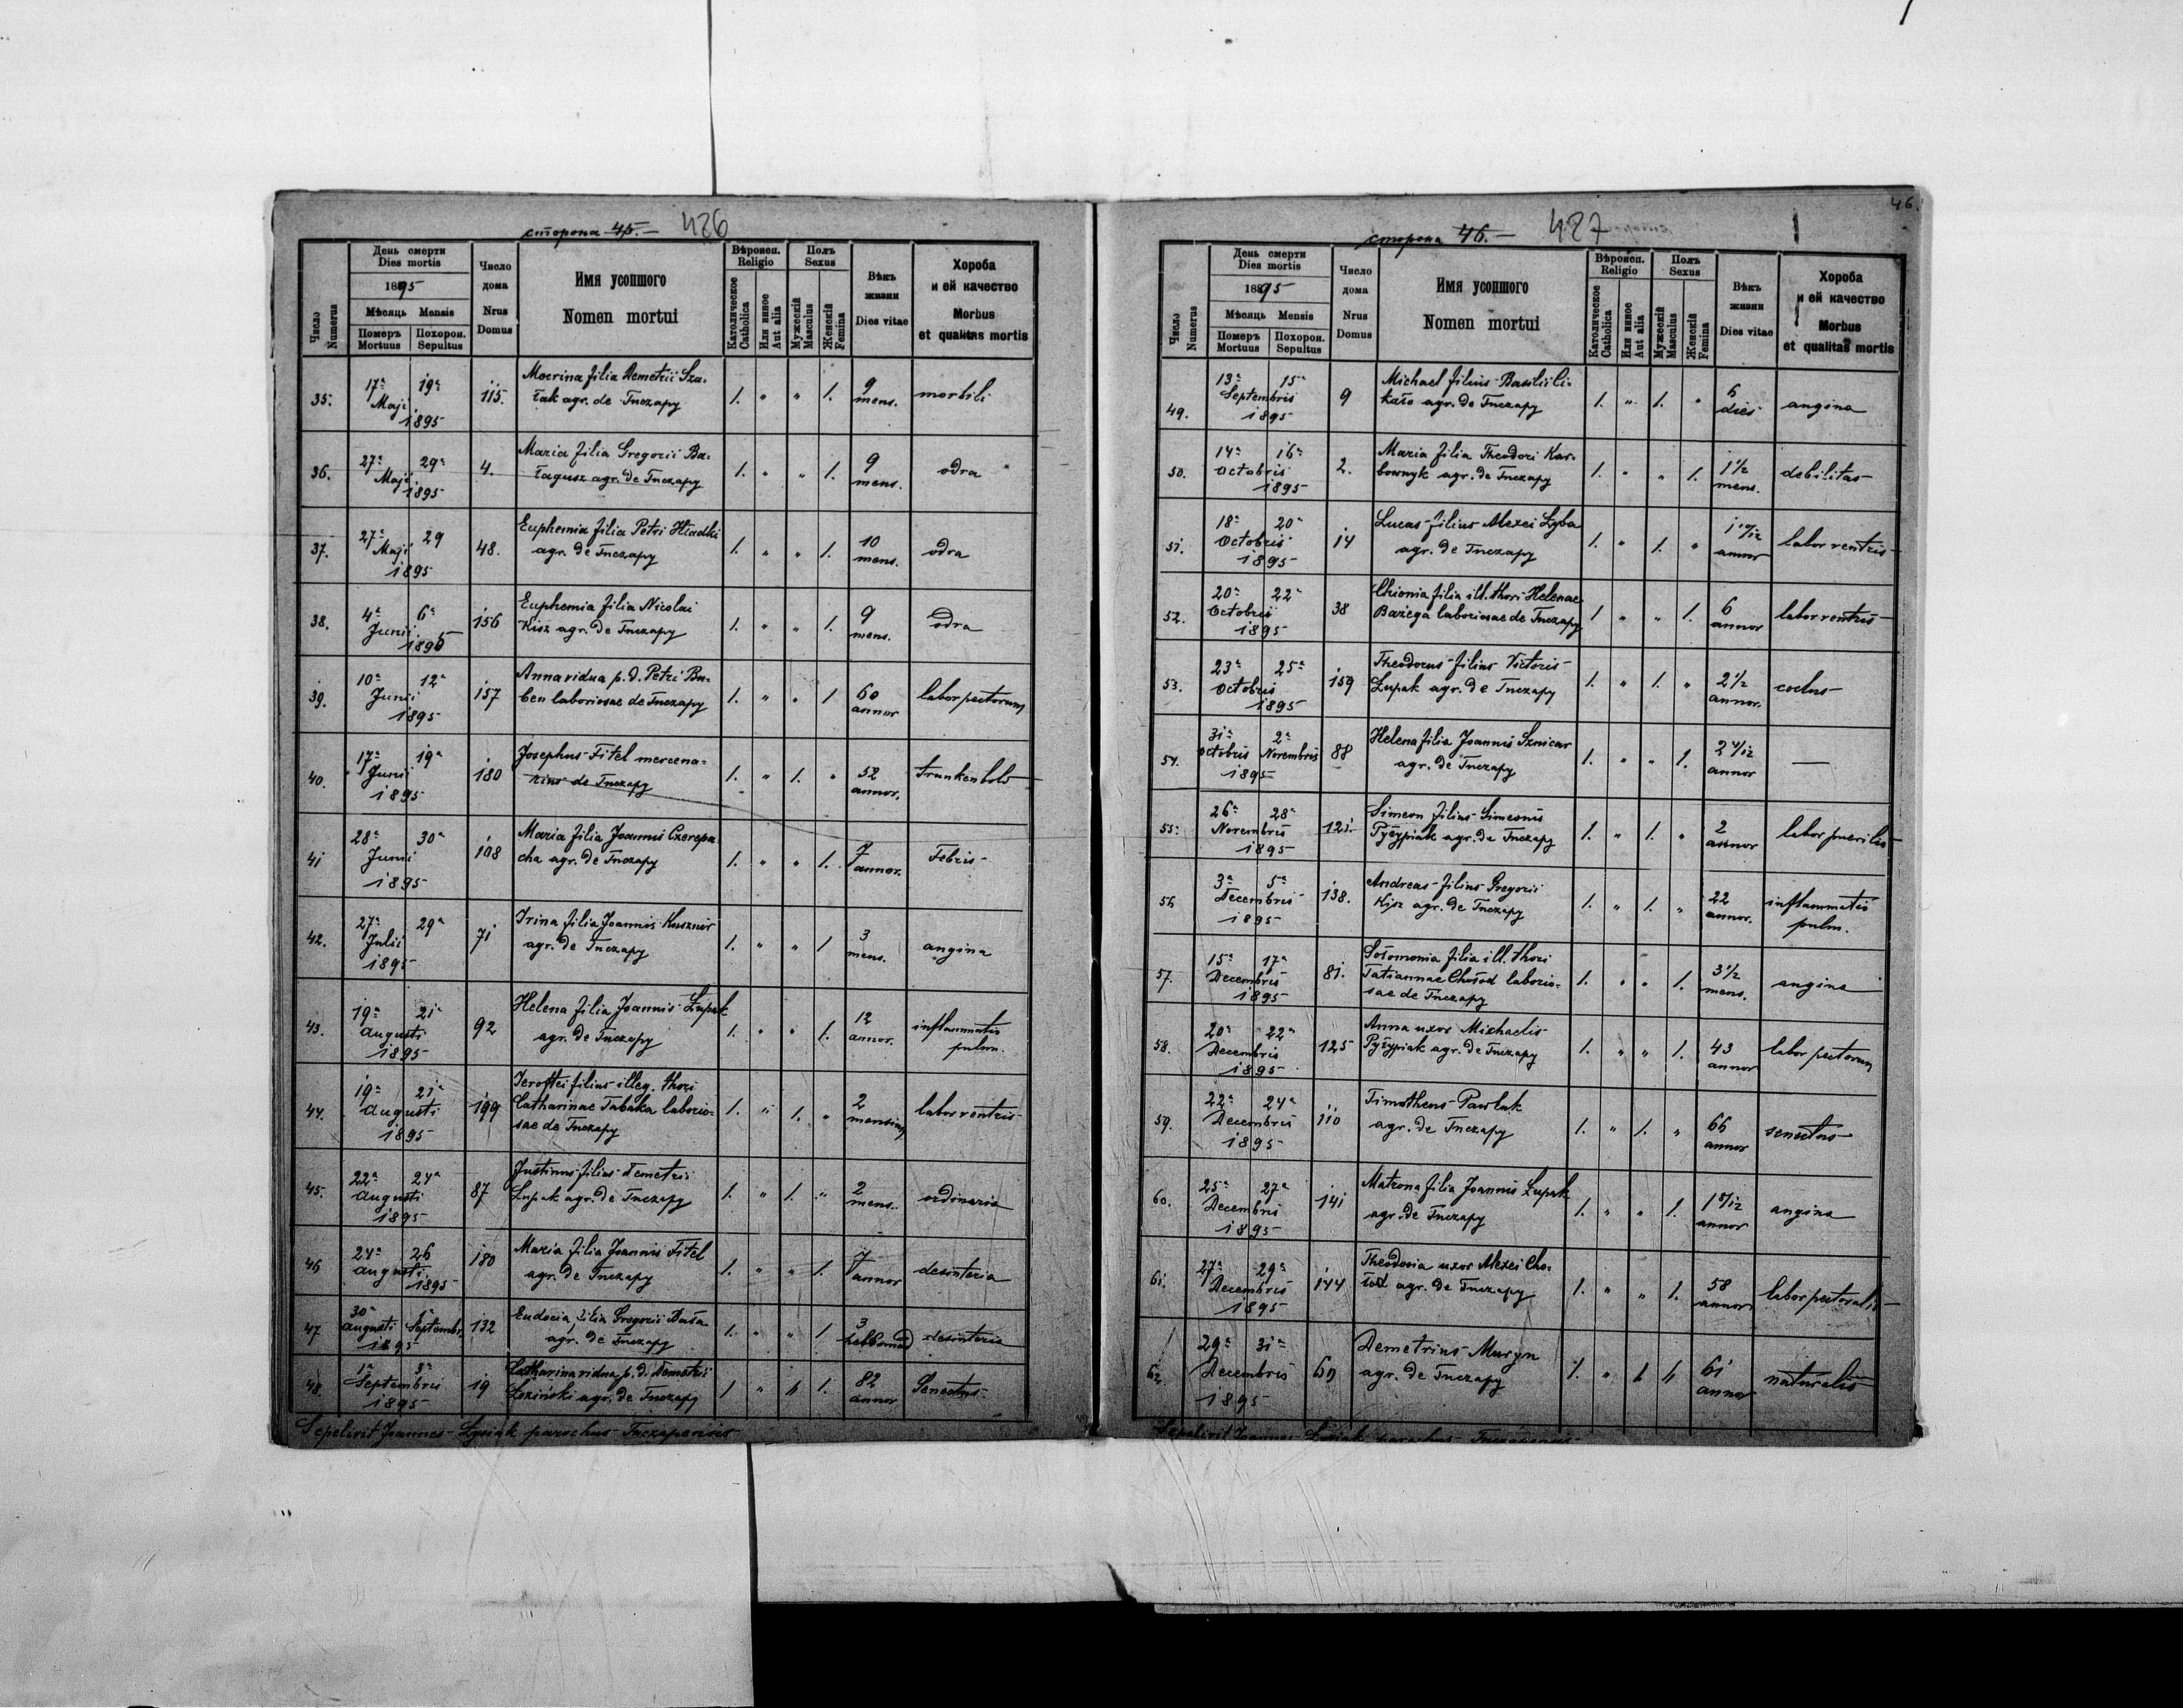 46.
сторона 45.— 426
Число Numerus
День смерти
Dies mortis
1895
Мѣсяць Mensis
Померъ Mortuus
Похорон. Sepultus
Число дома
Nrus Domus
Имя усопшого
Nomen mortui
Вѣроисп. Religio
Католическое Catholica
Или инное Aut alia
Полъ Sexus
Мужескій Masculus
Женскій Femina
Вѣкъ жизни
Dies vitae
Хороба и ей качество
Morbus et qualitas mortis
35. 17ª 19ª Maji 1895 115. Macrina filia Demetrii Sza-
łak agr. de Tnczapy 1. " " 1. 9 mens. morbili
36. 27ª 29ª Maji 1895 4. Maria filia Gregorii Ba-
łagusz agr. de Tnczapy 1. " " 1. 9 mens. odra
37. 27ª 29 Maji 1895 48. Euphemia filia Petri Hladki
agr. de Tnczapy 1. " " 1. 10 mens. odra
38. 4ª 6ª Junii 1895 156 Euphemia filia Nicolai
Kisz agr. de Tnczapy 1. " " 1. 9 mens. odra
39. 10ª 12ª Junii 1895 157 Anna vidua p. d. Petri Bu-
ben laboriosae de Tnczapy 1. " " 1 60 annor labor pectorum
40. 17ª 19ª Junii 1895 180 Josephus Fitel mercena-
rius de Tnczapy 1. " 1. " 52 annor. trunkenbold
41 28ª 30ª Junii 1895 108 Maria filia Joannis Czerepa-
cha agr. de Tnczapy 1. " " 1. 7 annor. Febris
42. 27ª 29ª Julii 1895 71 Irina filia Joannis Kusznir
agr. de Tnczapy 1. " " 1 3 mens. angina
43. 19ª 21ª Augusti 1895 92 Helena filia Joannis Łupak
agr. de Tnczapy 1. " " 1. 12 annor. inflammatio
pulm.
44. 19ª 21ª Augusti 1895 199 Jeroftei filius illeg. thori
Catharinae Tabaka laborio-
sae de Tnczapy 1. " 1. " 2 mensium labor ventris
45. 22ª 24ª Augusti 1895 87 Justinus filius Demetrii
Łupak agr. de Tnczapy 1. " 1. " 2 mens. ordinaria
46 24ª 26 Augusti 1895 180 Maria filia Joannis Fitel
agr. de Tnczapy 1. " " 1. 7 annor desinteria
47 30ª Augusti 1ª Septembr. 1895 132 Eudocia filia Gregorii
agr. de Tnczapy 1. " " 1 3 hebdomad desinteria
48. 1ª 3ª Septembris 1895 19 Catharina vidua p. d. Demetrii
Łoziński agr. de Tnczapy 1 " 1. 82 annor Senectus
Sepelivit Joannes Lysiak parochus Tnczapensis
сторона 46.— 427
Число Numerus
День смерти
Dies mortis
1895
Мѣсяць Mensis
Померъ Mortuus
Похорон. Sepultus
Число дома
Nrus Domus
Имя усопшого
Nomen mortui
Вѣроисп. Religio
Католическое Catholica
Или инное Aut alia
Полъ Sexus
Мужескій Masculus
Женскій Femina
Вѣкъ жизни
Dies vitae
Хороба и ей качество
Morbus et qualitas mortis
49. 13ª 15ª Septembris 1895 9 Michael filius Basilii Li-
kało agr. de Tnczapy 1. " 1. " 6 dies angina
50. 14ª 16ª Octobris 1895 2. Maria filia Theodori Kar-
bownyk agr. de Tnczapy 1. " " 1. 1 1/2 mens. debilitas
51. 18ª 20ª Octobris 1895 14 Lucas filius Alexei Zyba
agr. de Tnczapy 1. " 1. " 1 10/12 annor labor ventris
52. 20ª 22ª Octobris 1895 38 Chionia filia ill. thori Helenae
Bażega laboriosae de Tnczapy 1 " " 1. 6 annor labor ventris
53. 23ª 25ª Octobris 1895 159 Theodorus filius Victoris
Łupak agr. de Tnczapy 1. " 1. " 2 1/2 annor. coclus
54. 31ª Octobris 2ª Novembris 1895 88 Helena filia Joannis Sznicar
agr. de Tnczapy 1. " " 1. 2 4/12 annor —
55. 26ª 28ª Novembris 1895 121. Simeon filius Simeonis
Pyłypiak agr. de Tnczapy 1. " 1. " 2 annor labor puerilis
56 3ª 5ª Decembris 1895 138. Andreas filius Gregorii
Kisz agr. de Tnczapy 1. " 1. " 22 annor. inflammatio
pulm.
57. 15ª 17ª Decembris 1895 81. Sołomonia filia ill. thori
Tatiannae Chołod laborio-
sae de Tnczapy 1. " " 1. 3 1/2 mens. angina
58. 20ª 22ª Decembris 1895 125 Anna uxor Michaelis
Pyłypiak agr. de Tnczapy 1. " " 1. 43 annor labor pectorum
59. 22ª 24ª Decembris 1895 110 Timotheus Pawluk
agr. de Tnczapy 1. " 1. " 66 annor senectus
60. 25ª 27ª Decembris 1895 141 Matrona filia Joannis Łupak
agr. de Tnczapy 1. " " 1. 1 8/12 annor angina
61. 27ª 29ª Decembris 1895 144 Theodosia uxor Alexei Cho-
łod agr. de Tnczapy 1. " " 1. 58 annor labor pectoralis
62. 29ª 31ª Decembris 1895 60 Demetrius Muryn
agr. de Tnczapy 1. " 1 61 annor naturalis
Sepelivit Joannes Lysiak parochus Tnczapensis